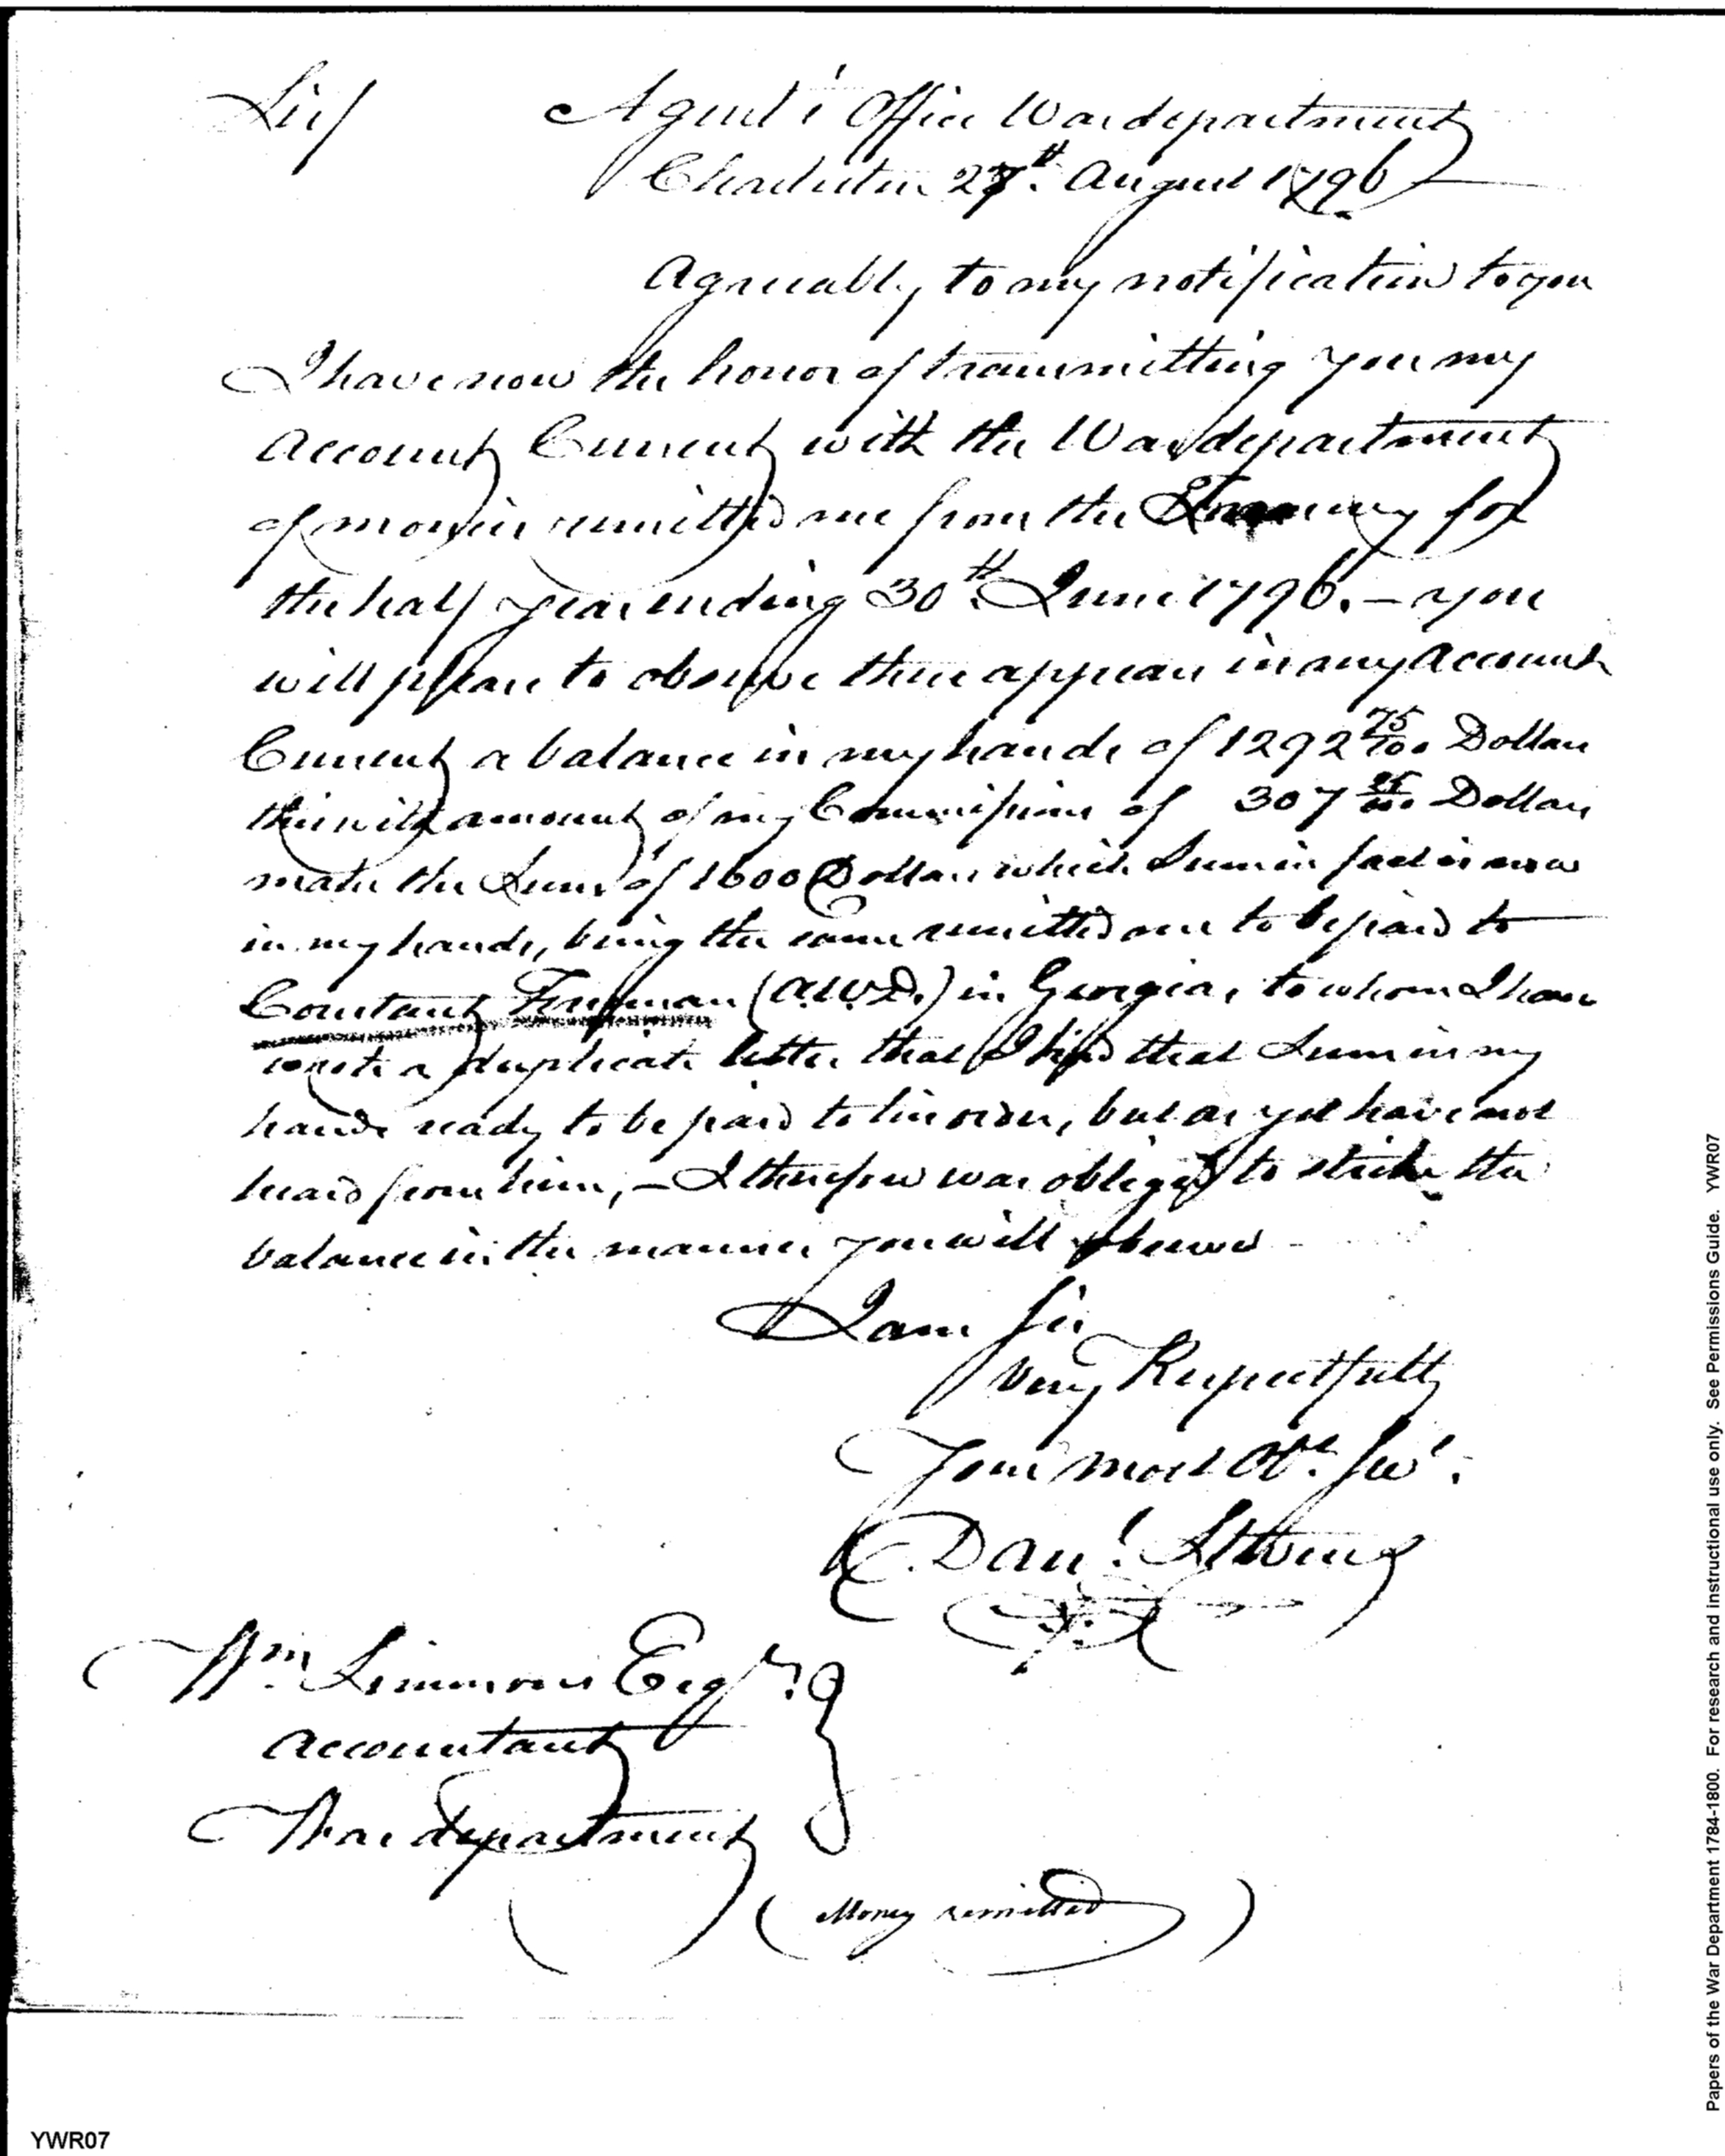 Sir/ Agent's Office War department
Charleston 27th. August 1796
Agreeably to my notification to you
I have now the honor of transmitting you my
Account Current with the War department
of monies remitted me from the Treasury for
the half year ending 30th. June 1796. – you
will please to observe there appears in my Account
Current a balance in my hands of 1292 75/100 Dollars
this with amount of my Commissions of 307 25/100 Dollars
make the Sum of 1600 Dollars which Sum in fact is now
in my hands, being the same remitted me to be paid to
Constant Freeman (A.W.D.) in Georgia, to whom I have
wrote a duplicate letter that I had that Sum in my
hands ready to be paid to his order, but as yet have not
heard from him, – I therefore was obliged to strike the
balance in the manner you will observe
I am Sir
Very Respectfully
Your most Obt. Servt.
Danl. Stevens
Wm. Simmons Esqr.
Accountant
War department
(Money remitted)
YWR07
Papers of the War Department 1784-1800. For research and instructional use only. See Permissions Guide. YWR07